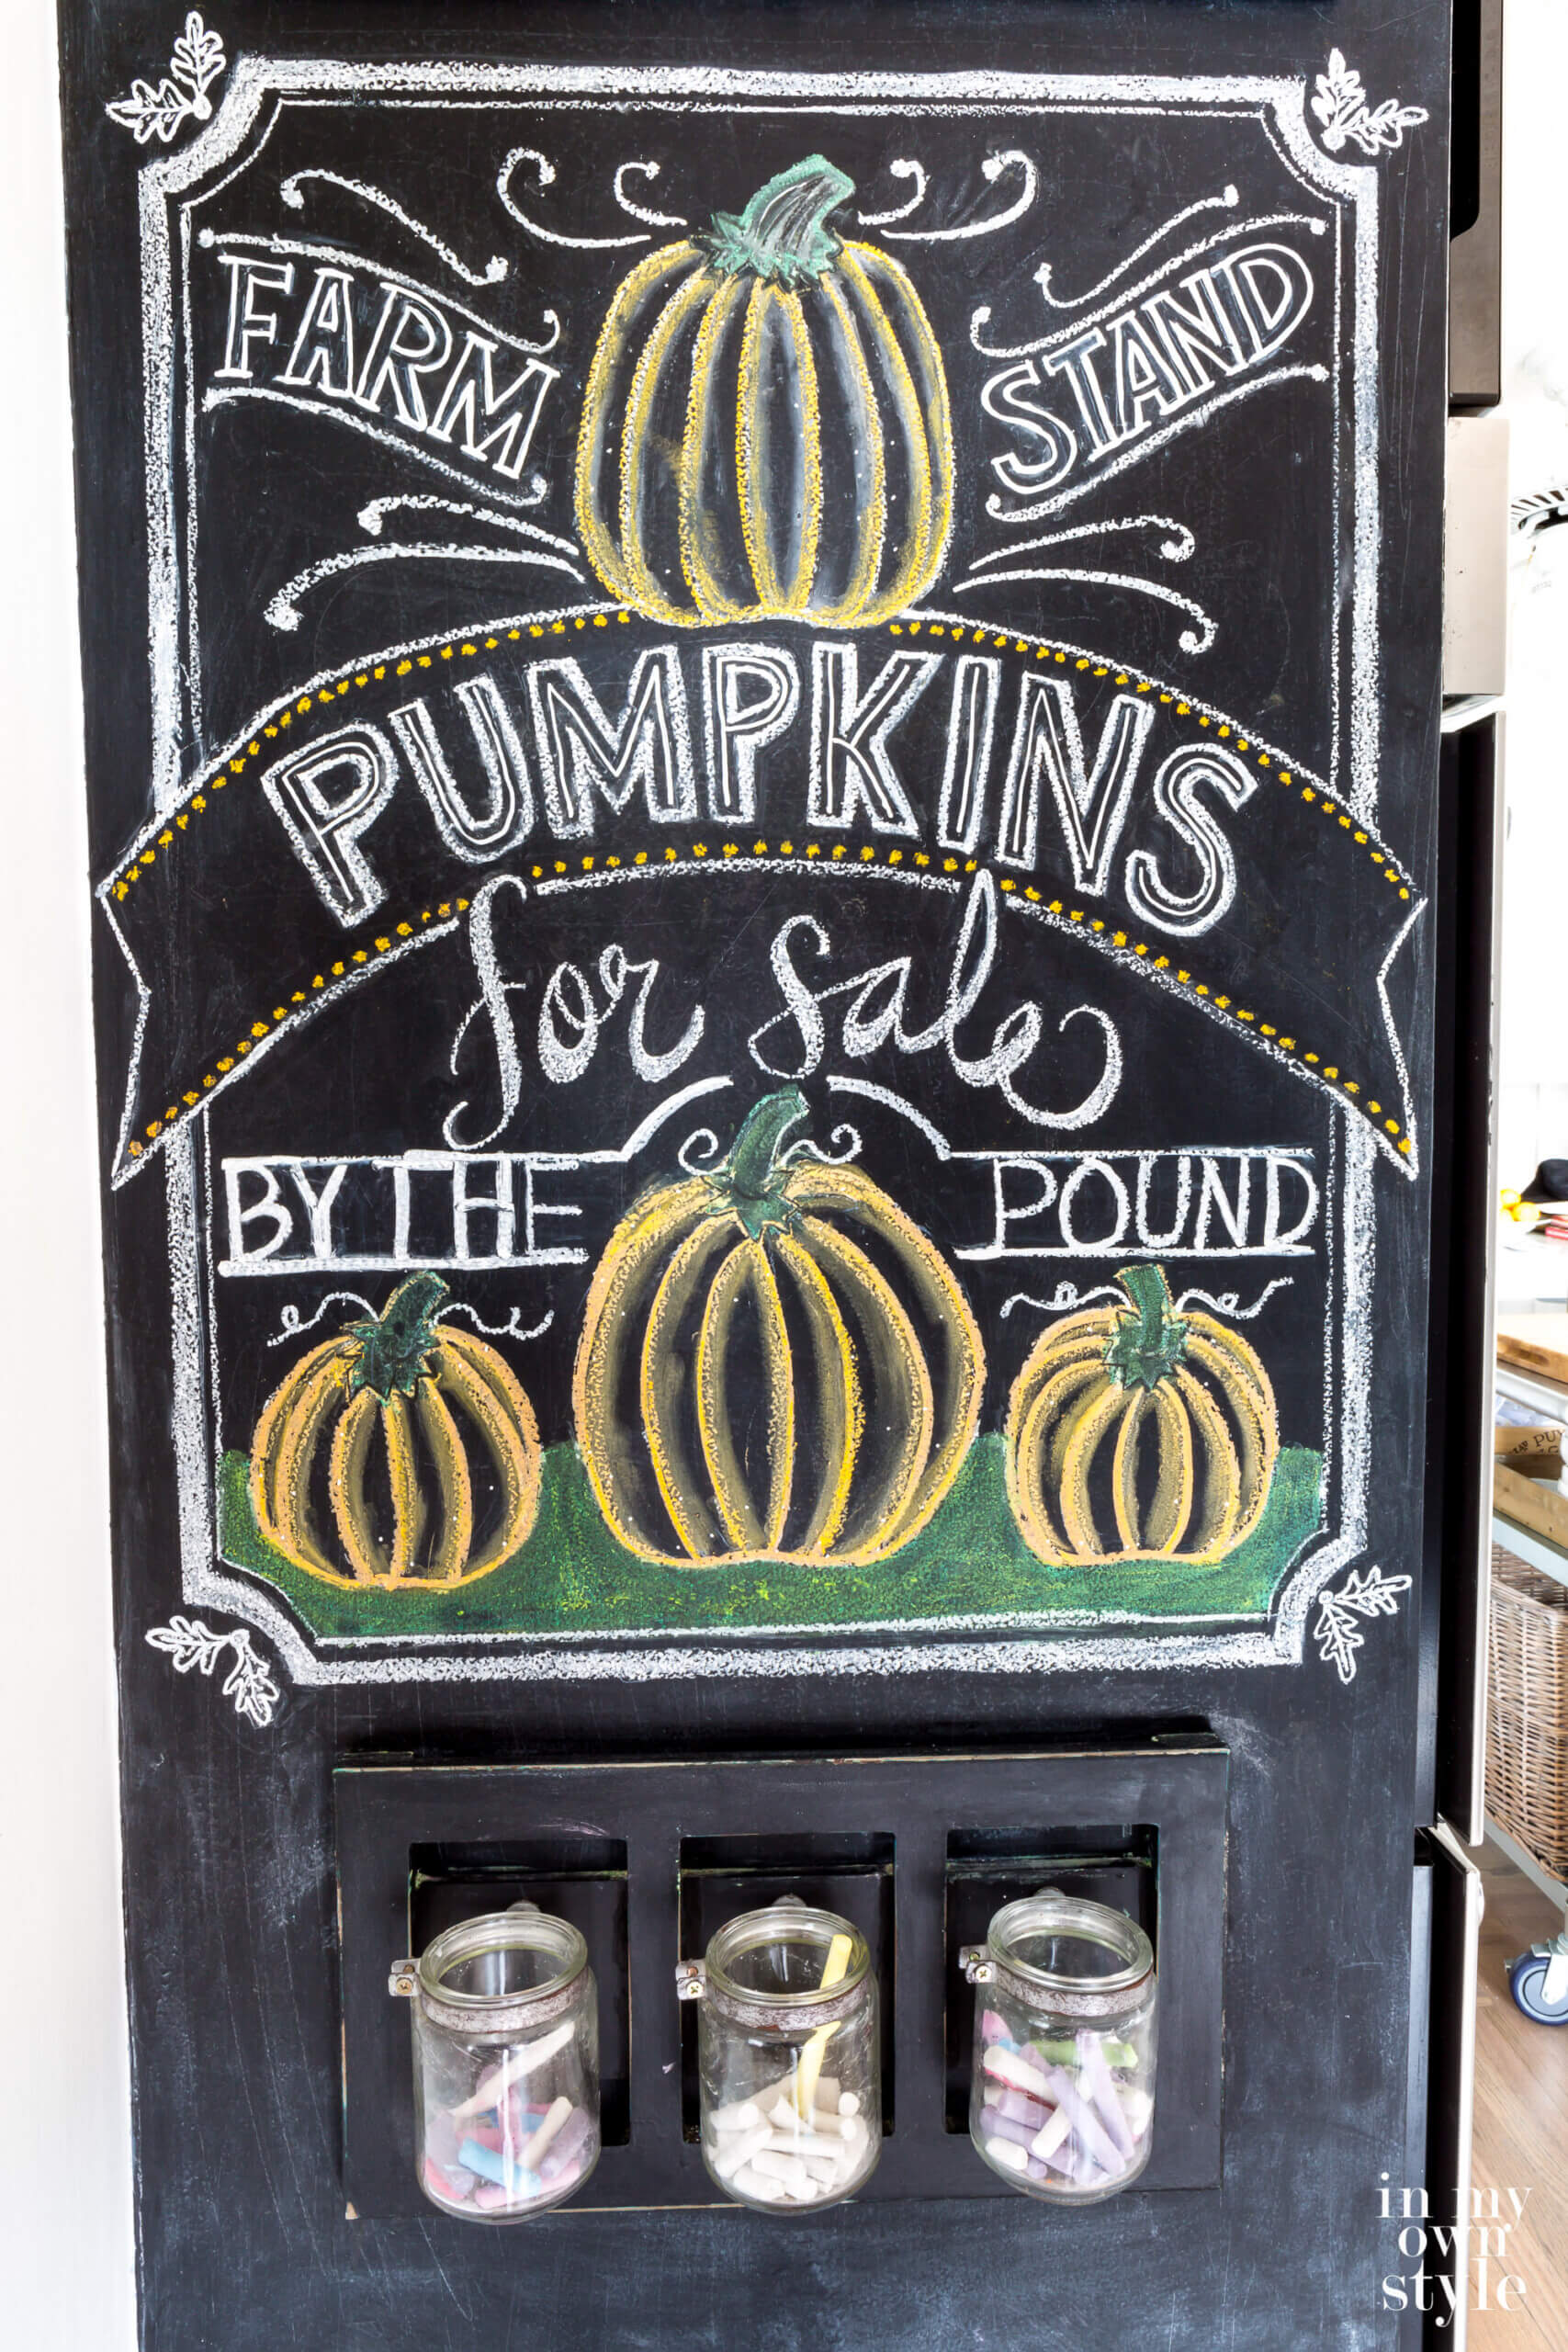 FARM STAND
PUMPKINS
for sale
BY THE POUND
in my
own
style